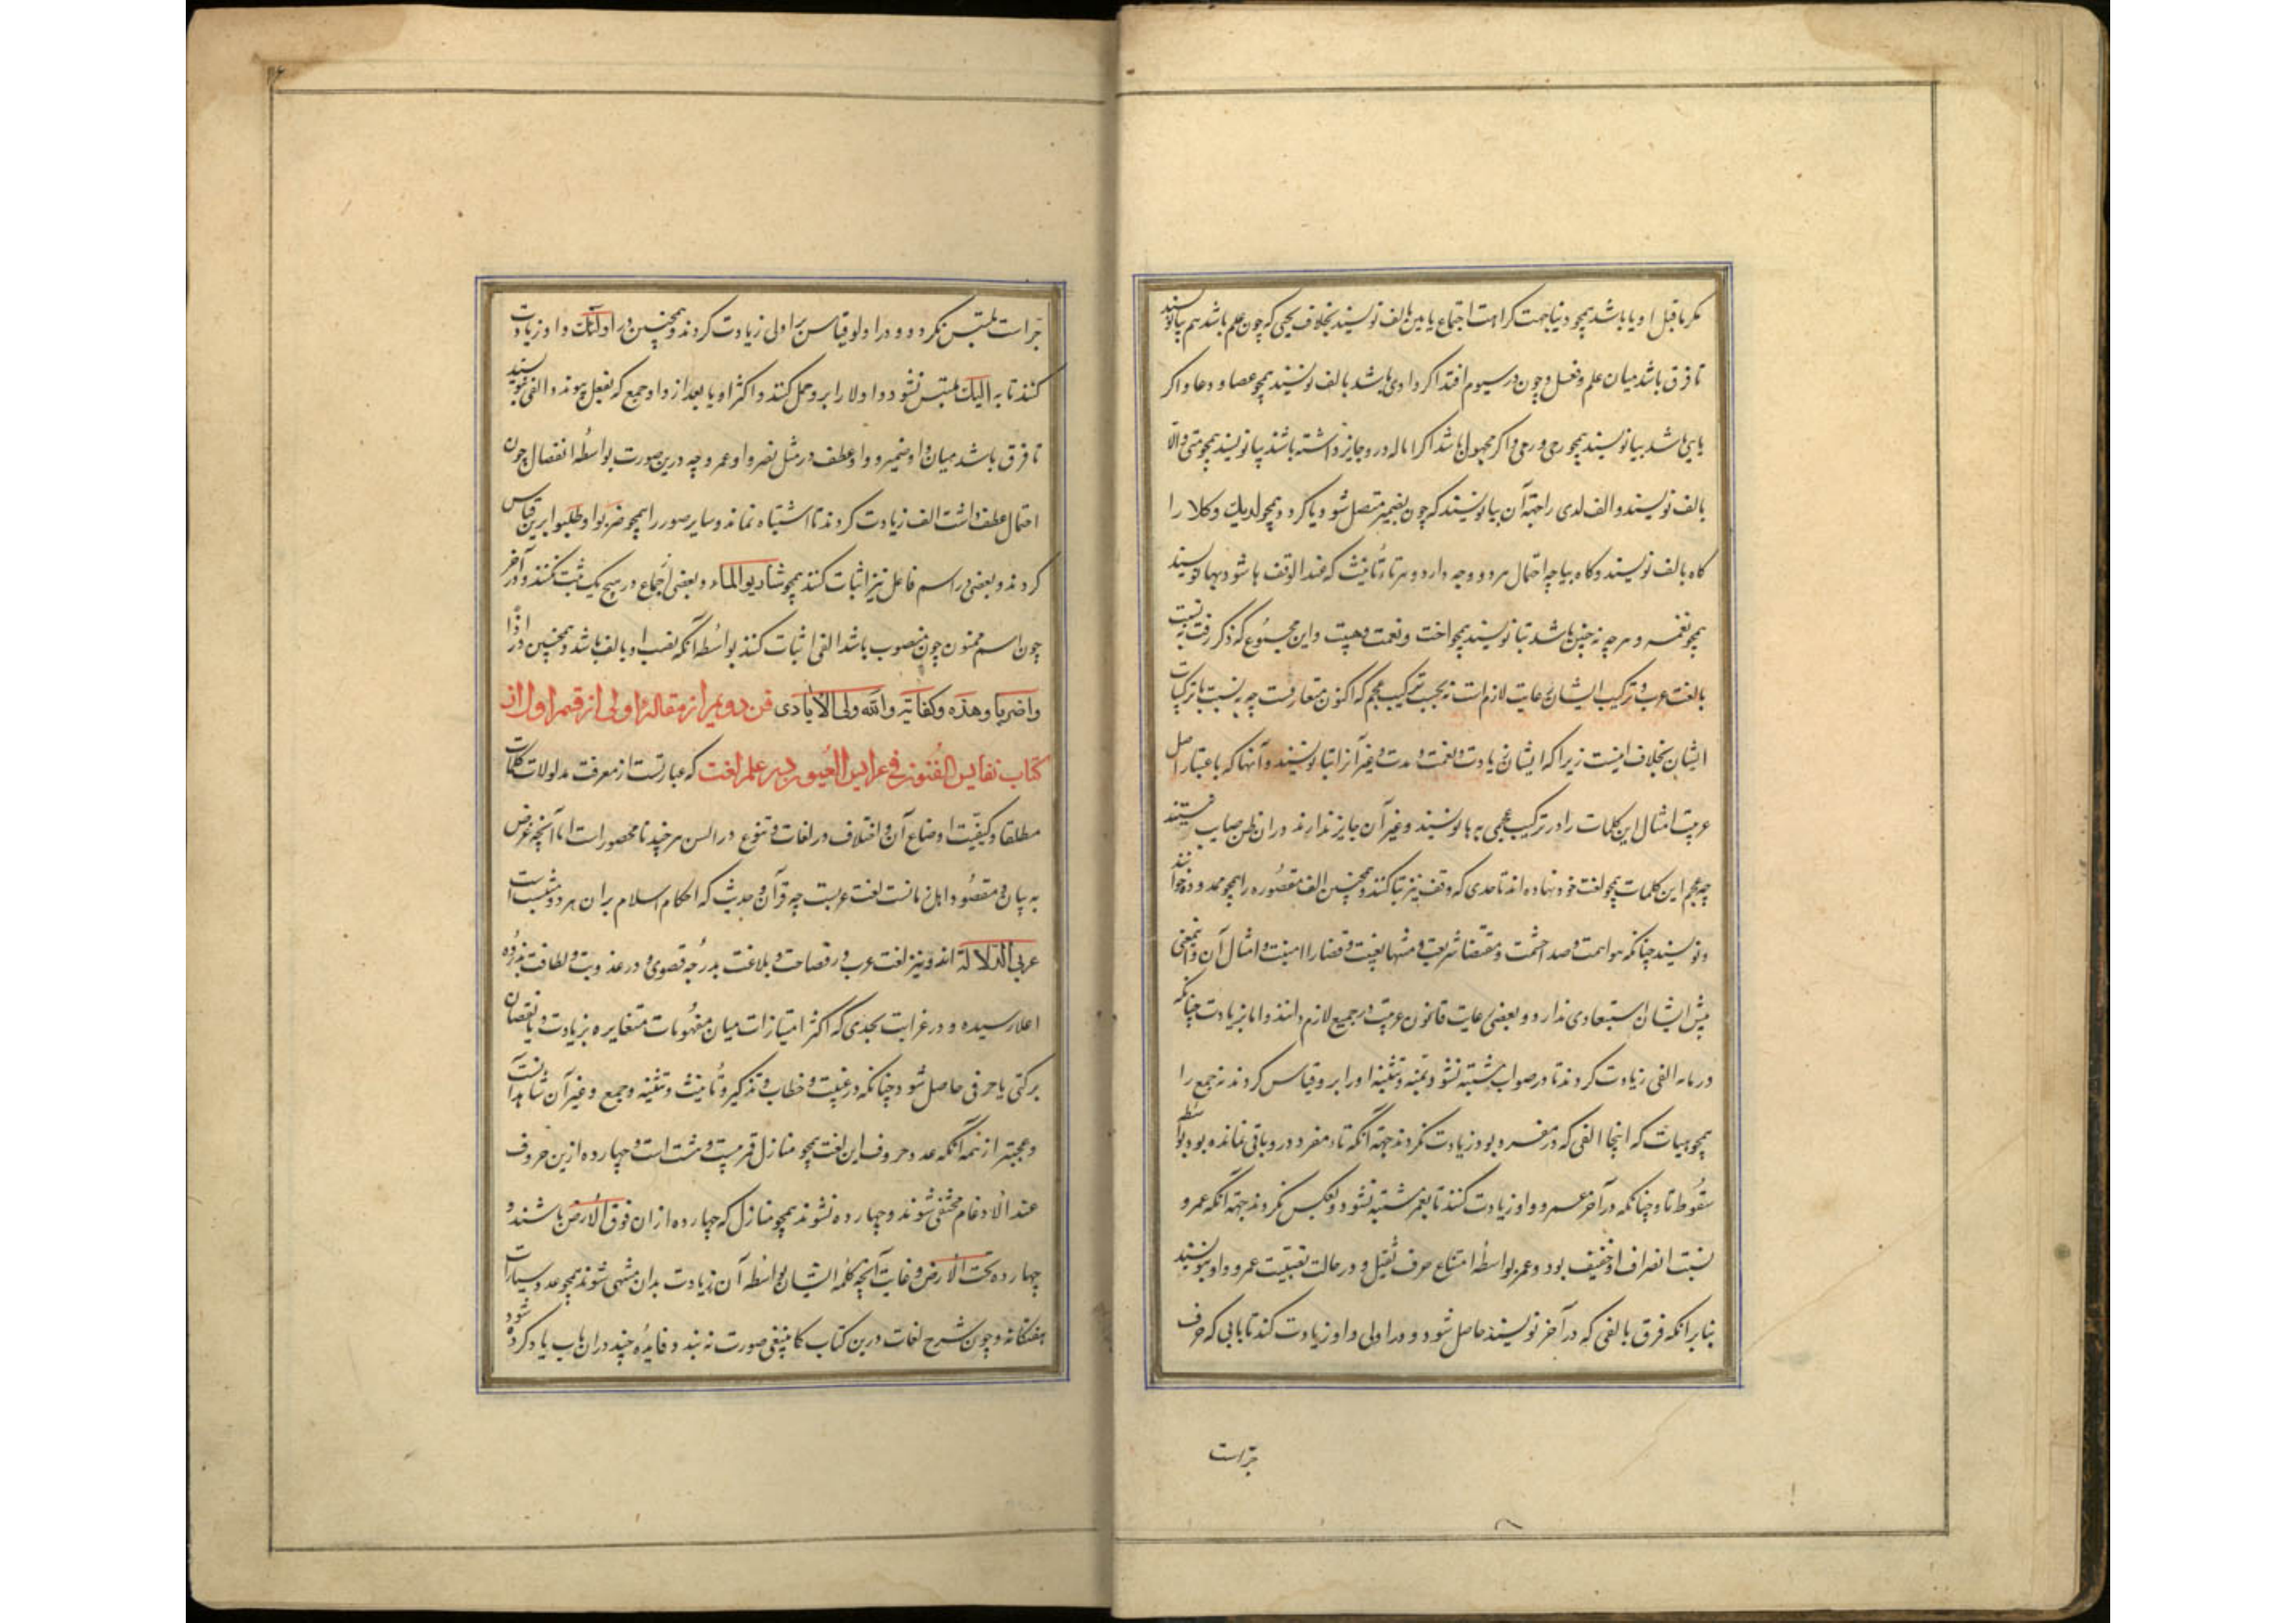 مکر ماقبل او یا باشد همچو دنیا بجهت کراهت اجتماع یا بین بالف نویسند بخلاف یحیی که چون علم باشد هم بیا نویسند
تا فرق باشد میان علم و فعل و چون در سیوم افتد اکر واوی باشد بالف نویسند همچو عصا و دعا و اکر
یایی باشد بیا نویسند همچو رحی و رمی و اکر مجهول باشد اکر اماله درو جایز داشته باشند بیا نویسند همچو متی و الّا
بالف نویسند و الف لدی را جهة آن بیا نویسند که چون بضمیر متصل شود یا کردد همچو لدیك و کلا را
کاه بالف نویسند و کاه بیا چه احتمال هر دو وجه دارد و هر تاء تأنیث که عند الوقف ها شود بها نویسند
همچو نعمه و هر چه نه چنین باشد بتا نویسند همچو اخت و نعمت و هیت و این مجموع که ذکر رفت به نسبت
بالغت عرب و ترکیب ایشان رعایت لازم است نه بحسب ترکیب عجم که اکنون متعارفست چه به نسبت با ترکیبات
ایشان بخلاف اینست زیرا که ایشان زیادت و نعمت و مدت و غیر آنرا بتا نویسند و آنها که باعتبار اصل
عربیت امثال این کلمات را در ترکیب عجمی به ها نویسند و غیر آن جایز ندارند در ان ظن صایب نیستند
چه عجم این کلمات همچو لغت خود نهاده اند تا حدی که وقف نیز بتا کنند و همچنین الف مقصوره را همچو ممدود خوانند
و نویسند چنانکه هوا همت و صدا حشمت و مقتضا شریعت و منتها بغیت و قضا را امنیت و امثال آن و این معنی
پیش ایشان استبعادی ندارد و بعضی رعایت قانون عربیت در جمیع لازم دانند و اما بزیادت چنانکه
در مایه الفی زیادت کردند تا در صواب مشتبه نشود بمنه و تثنیه او را برو قیاس کردند نه جمع را
همچو میات که اینجا الفی که در مفرد بود زیادت نکردند جهة آنکه تاء مفرد درو باقی نمانده بود بواسطه
سقوط تا و چنانکه در آخر عمرو واو زیادت کنند تا بعمر مشتبه نشود و بعکس نکردند جهة آنکه عمرو
نسبت انصراف او خفیف بود و عمر بواسطهٔ امتناع صرف ثقیل و در حالت نصبیت عمرو واو ننویسند
بنابر انکه فرق بالفی که در آخر نویسند حاصل شود و در اولی واو زیادت کنند تا بالی که حرف
جرّ است
جرّ است ملتبس نکردد و در اولو قیاس بر اولی زیادت کردند و همچنین در اولئك واو زیادت
کنند تا به الیك ملتبس نشود و اولا را برو حمل کنند و اکثر او یا بعد از واو جمع که بفعل پیوندد الفی نویسند
تا فرق باشد میان واو ضمیر و واو عطف در مثل نصروا و عمرو چه درین صورت بواسطهٔ انفصال چون
احتمال عطف داشت الف زیادت کردند تا اشتباه نماند و سایر صور را همچو ضربوا و طلبوا برین قیاس
کردند و بعضی در اسم فاعل نیز اثبات کنند همچو شاربوا الماء و بعضی اجماع در هیچ یک ثبت نکنند و در آخر
چون اسم منون چون منصوب باشد الفی اثبات کنند بواسطه آنکه نصب او بالف باشد و همچنین در اذًا
واضربا و هذه و کفایة و الله ولی الایادی فن دویم از مقالهٔ اولی از قسم اول از
کتاب نفایس الفنون فی عرایس العیون در علم لغت که عبارتست از معرفت مدلولات کلمات
مطلقا و کیفیّت اوضاع آن و اختلاف در لغات و تنوع در السن هر چند نامحصور است اما آنچه غرض
به بیان و مقصود اهل زمانست لغت عربست چه قرآن و حدیث که احکام اسلام بر ان هر دو مثبتست
عربی الدلالة اند و نیز لغت عرب در فصاحت و بلاغت بدرجهٔ قصوی و در عذوبت و لطافت بذروه
اعلا رسیده و در غرابت بحدی که اکثر امتیازات میان مفهومات متغایره بزیادت و نقصان
برکتی یا حرفی حاصل شود چنانکه در غیبت و خطاب و تذکیر و تأنیث و تثنیه و جمع و غیر آن
و عجبتر از همه آنکه عدد حروف این لغت همچو منازل قمر بیست و هشت است و چهارده ازین حروف
عند الادغام مختفی شوند و چهارده نشوند همچو منازل که چهارده از ان فوق الارض باشند و
چهارده تحت الارض و غایت آنچه کلمه ایشان بواسطه آن زیادت بدان منتهی شوند همچو عدد سیارات
هفتکانه و چون شرح لغات درین کتاب کما ینبغی صورت نه بندد فایدهٔ چند در ان باب یاد کرده شود